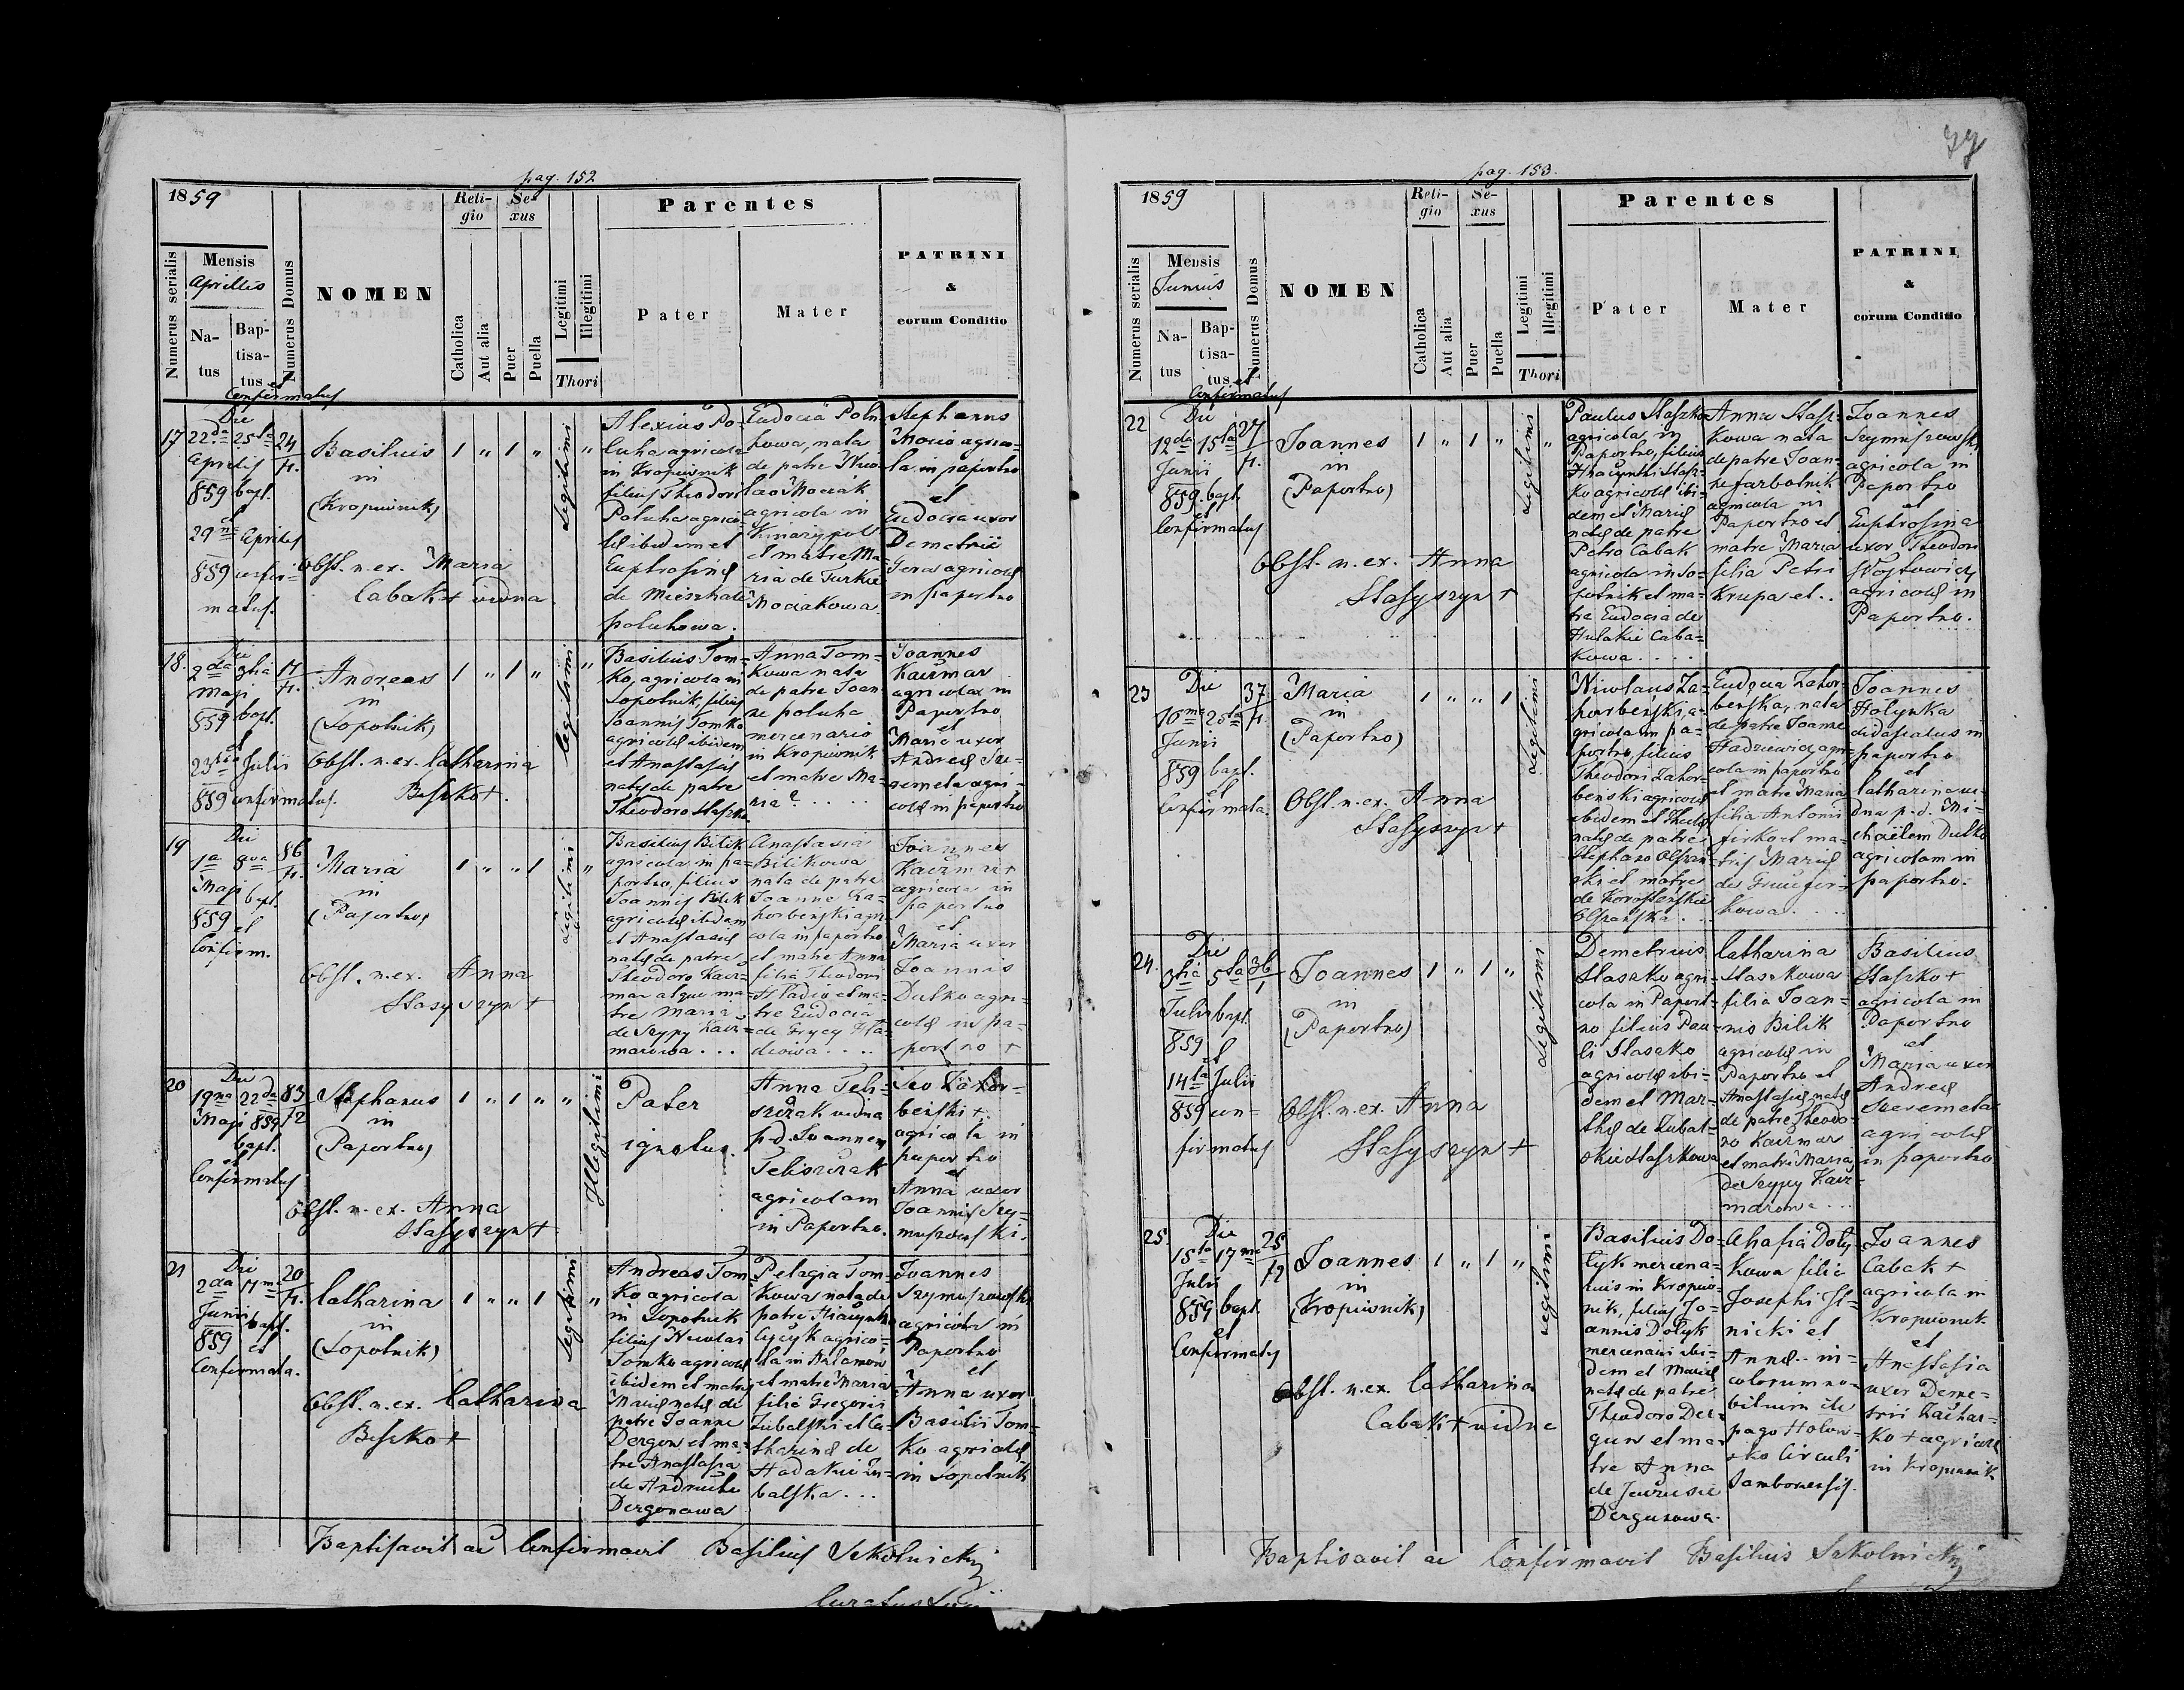 pag. 152
1859
Numerus serialis
Mensis
Aprillis
Natus
Baptisatus
et
Confirmatus
Numerus Domus
NOMEN
Religio
Catholica
Aut alia
Sexus
Puer
Puella
Legitimi
Illegitimi
Thori
Parentes
Pater
Mater
PATRINI
&
eorum Conditio
17
Die
22da 25ta 24
Aprilis
859 bapt.
et
29na Aprilis
859 confir=
matus.
Basilius
in
(Kropiwnik)
1 „ 1 „
Legitimi
„
Obst. n. ex. Maria
Cabak + vidua
Alexius Po=
luha agricola
in Kropiwnik
filius Theodori
Poluha agrico=
læ ibidem et
Euphrosinæ
de
poluhowa.
Eudocia Polu=
howa, nata
de patre Nico=
lao Mociak
agricola in
et matre Ma=
ria de Turkie
Mociakowa.
Stephanus
Mocio agrico=
la in paportno
et
Eudocia uxor
Demetrii
agricolæ
in paportno
18.
Die
2da 3tia 17
Maji
859 bapt.
et
23tia Julii
859 confirmatus.
Andreas
in
(Sopotnik)
1 „ 1 „
legitimi
„
Obst. n. ex. Catherina
Beszko +.
Basilius Tom=
ko, agricola in
Sopotnik, filius
Joannis Tomko
agricolæ ibidem
et Anastasiæ
natæ de patre
Theodoro Staszko.
Anna Tom=
kowa nata
de patre Joan=
ne poluha
mercenario
in Kropiwnik
et matre Ma=
ria? . . . .
Joannes
Kaczmar
agricola in
Paportno
et
Maria uxor
Andreæ Sze=
remeta agri=
colæ in paportno
19
Die
1a 8va 86
Maji bapt.
859 et
Confirm.
Maria
in
(Paportno)
1 „ „ 1
Legitimi
„
Obst. n. ex. Anna
Stasyszyn +
Basilius Bilik
agricola in pa=
portno, filius
Joannis Bilik
agricolæ ibidem
et Anastasiæ
natæ de patre
Theodoro Kacz=
mar atque ma=
tre Maria
de Szypy Kacz=
marowa . . .
Anastasia
Bilikowa
nata de patre
Joanne Za=
horbenski agri=
cola in paportno
et matre Anna
filia Theodori
Hladio et ma=
tre Eudocia
de Hla=
diowa . . . .
Joannes
Kaczmar +
agricola in
paportno
et
Maria uxor
Joannis
Dutko agri=
colæ in pa=
portno +
20
Die
19na 22da 83
Maji 859 12
bapt.
et
Confirmatus
Stephanus
in
(Paportno)
1 „ 1 „ „
Illegitimi
Obst. n. ex. Anna
Stasyszyn +
Pater
ignotus.
Anna Teli=
szczak vidua
p. d. Joannem
Teliszczak
agricolam
in Paportno.
Leo Zahor=
benski +
agricola in
paportno
et
Anna uxor
Joannis Szy=
muszowski.
21
Die
2da 17ma 20
Junii bapt.
859 et
Confirmata.
Catharina
in
(Sopotnik)
1 „ „ 1
Legitimi
„
Obst. n. ex. Catharina
Beszko +
Andreas Tom=
ko agricola
in Sopotnik
filius Nicolai
Tomko agricolæ
ibidem et matris
Mariæ natæ de
patre Joanne
Dergon et ma=
tre Anastasia
de Andruchu
Dergonowa
Pelagia Tom=
kowa nata de
patre Hiacyntho
Cycyk agrico=
la in Arlamow
et matre Maria
filia Gregorii
Zubalski et Ca=
tharinæ de
Hadakie Zu=
balska . . .
Joannes
Szymuszowski
agricola in
Paportno
et
Anna uxor
Basilii Tom=
ko agricolæ
in Sopotnik
Baptisavit ac Confirmavit Basilius Sekolnicky
Curatus
77
pag. 153.
1859
Numerus serialis
Mensis
Junius
Natus
Baptisatus
et
Confirmatus
Numerus Domus
NOMEN
Religio
Catholica
Aut alia
Sexus
Puer
Puella
Legitimi
Illegitimi
Thori
Parentes
Pater
Mater
PATRINI
&
eorum Conditio
22
Die
12da 15ta 27
Junii
859. bapt.
et
Confirmatus
Joannes
in
(Paportno)
1 „ 1 „
Legitimi
„
Obst. n. ex. Anna
Stasyszyn +
Paulus Staszko
agricola in
Paportno, filius
Hyacynthi Stasz=
ko agricolæ ibi=
dem et Mariæ
natæ de patre
Petro Cabak
agricola in So=
potnik et ma=
tre Eudocia de
Hulakie Caba=
kowa . . . .
Anna Stasz=
kowa nata
de patre Joan=
ne Jarbotnik
agricola in
Paportno et
matre Maria
filia Petri
Krupa et . .
Joannes
Szymuszowski
agricola in
Paportno
et
Euphrosina
uxor Theodori
Wojtowicz
agricolæ in
Paportno.
23
Die
16ma 25ta 37
Junii
859 bapt.
et
Confirmata.
Maria
in
(Paportno)
1 „ „ 1
Legitimi
Obst. n. ex. Anna
Stasyszyn +
Nicolaus Za=
horbenski, a=
gricola in pa=
portno, filius
Theodori Zahor=
benski agricolæ
ibidem et Theclæ
natæ de patre
Stephano Olszan=
ski et matre
de Korostenskie
Olszanska . . .
Eudocia Zahor=
benska, nata
de patre Joanne
Hadziewicz agri=
cola in paportno
et matre Maria
filia Antonii
Firko et ma=
tris Mariæ
de Fir=
kowa . . . .
Joannes
Holynka
didascalus in
paportno
et
Catharina vi=
dua p. d. Mi=
chaëlem Dutko
agricolam in
paportno.
24.
Die
3tia 5ta 36
Julii bapt.
859 et
14ta Julii
859 con=
firmatus
Joannes
in
(Paportno)
1 „ 1 „
Legitimi
Obst. n. ex. Anna
Stasyszyn +
Demetrius
Staszko agri=
cola in Paport=
no filius Pau=
li Staszko
agricolæ ibi=
dem et Mar=
thæ de Zubal=
skie Staszkowa
Catharina
Staszkowa
filia Joan=
nis Bilik
agricolæ in
Paportno et
Anastasiæ natæ
de patre Theodo=
ro Kaczmar
et matre Maria
de Szypy Kacz=
marowa . . .
Basilius
Staszko +
agricola in
Paportno
et
Maria uxor
Andreæ
Szeremeta
agricolæ
in paportno
25
Die
15ta 17ma 25
Julii 12
859 bapt.
et
Confirmatus
Joannes
in
(Kropiwnik)
1 „ 1 „
Legitimi
Obst. n. ex. Catharina
Cabak + vidua
Basilius Do=
tyk mercena=
rius in Kropiw=
nik, filius Jo=
annis Dotyk
mercenarii ibi=
dem et Mariæ
natæ de patre
Theodoro Der=
gun et ma=
tre Anna
de
Dergunowa.
Ahafia Doty=
kowa filia
Josephi Il=
nicki et
Annæ . . in=
colorum no=
bilium de
pago Holow=
sko Circuli
Samboriensis.
Joannes
Cabak +
agricola in
Kropiwnik
et
Anastasia
uxor Deme=
trii Zachar=
ko + agricolæ
in Kropiwnik
Baptisavit ac Confirmavit Basilius Sekolnicky